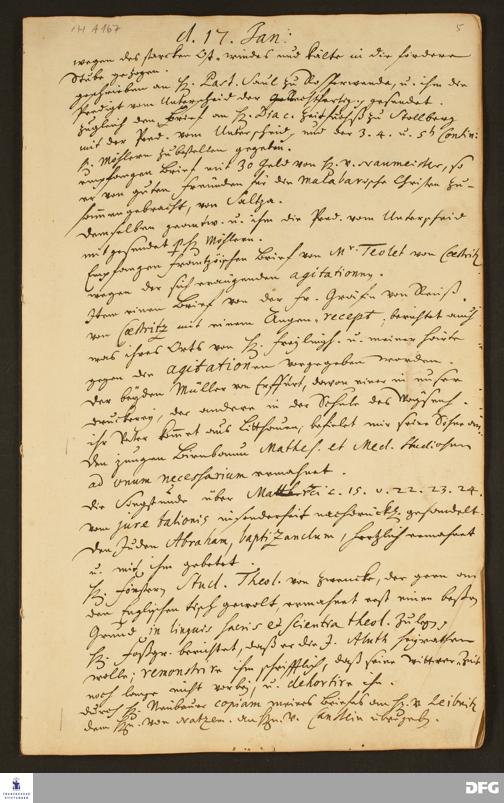 1H A 167
5
d. 17. Jan:
wegen des starcken Ost-windes und kälte in die fördere
Stube gezogen.
geschrieben an H. Past. Saul zu, u. ihm die
Predigt vom Unterscheid der gesendet.
zugleich den Brief an H. Diac. zu Stollberg
mit der Pred. vom Unterscheid, und der 3. 4. u. 5t Contin:
H. Möhlern zubestellen gegeben.
empfangen Brief mit 30 Geld von H. v. Naumeister, so
er von guten freunden für die Malabarische Christen zu-
sammengebracht, von Saltza.
demselben geantw. u. ihm die Pred. vom Unterscheid
mitgesendet p H. Möhlern.
Empfangen frantzöischen Brief von Mr. Teolet von Cöstritz
wegen der sich eräugenden agitationen.
Item einen Brief von der fr. Gräfin von Reuß
von Cöstritz mit einem Augen-recept, berichtet auch
was ihres Orts von H. freylingh. u. meiner heirte
gegen die agitationen vorgegeben worden.
der beyden Müller von Erffurt, davon einer in unser
druckerey, der andere in der Schule des Waysenh.
ihr Vater kömt aus Litthauen, befielet mir seine Söhne an.
den jungen Birnbaum Mathes. et Med. studiosum
ad unum necessarium ermahnet.
die Singstunde über Matthäi c. 15. v. 22. 23. 24.
vom jure talionis insonderheit nachdrückl. gehandelt.
den Juden Abraham, baptizandum, hertzlich ermahnet
u. mit ihm gebetet
H. Stud. Theol. von, der gern an
den Englischen tisch gewolt, ermahnet erst einen besten
Grund in linguis sacris et scientia theol. zu legen,
H. berichtet, daß er die J. heyrathen
wolle; remonstrire ihm schrifftlich, daß seine witwer-Zeit
noch lange nicht vorbey, u. dehortire ihn.
durch H. Neubauer copiam meines Briefes an H. v. Leibnitz
dem Hn. von Natzen. an Hn. v. Canstein übergeb.
FRANCKESCHE STIFTUNGEN
DFG